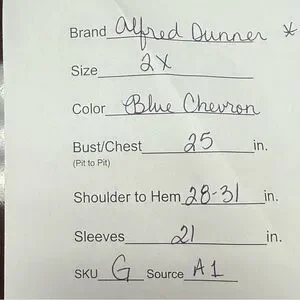 Brand Alfred Dunner *
Size 2X
Color Blue Chevron
Bust/Chest 25 in.
(Pit to Pit)
Shoulder to Hem 28-31 in.
Sleeves 21 in.
SKU G Source A1